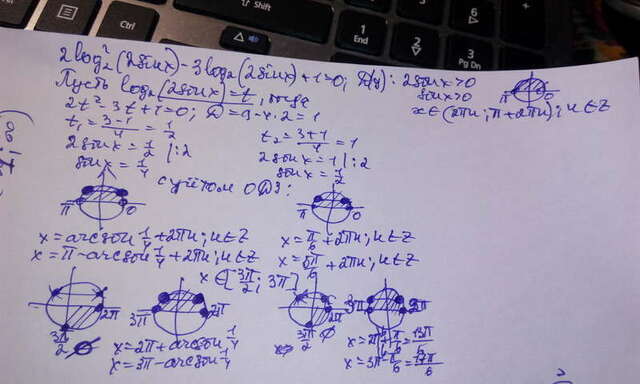 Shift
Ctrl
1
End
2
3
Pg Dn
6
2log₂²(2sinx)-3log₂(2sinx)+1=0; D(y): 2sinx>0
sinx>0
π 0
x∈(2πn; π+2πn); n∈Z
Пусть log₂(2sinx)=t, тогда
2t²-3t+1=0; D=9-4·2=1
t₁=3-1/4=1/2 t₂=3+1/4=1
2sinx=1/2 |:2 2sinx=1 |:2
sinx=1/4 sinx=1/2
с учётом ОДЗ:
π 0 π 0
x=arcsin 1/4+2πn; n∈Z x=π/6+2πn; n∈Z
x=π-arcsin 1/4+2πn; n∈Z x=5π/6+2πn; n∈Z
x∈[3π/2; 3π]
2π 3π 2π 2π 3π 2π
3π/2 ∅ 3π/2 ∅
x=2π+arcsin 1/4 x=2π+π/6=13π/6
x=3π-arcsin 1/4 x=3π-π/6=17π/6